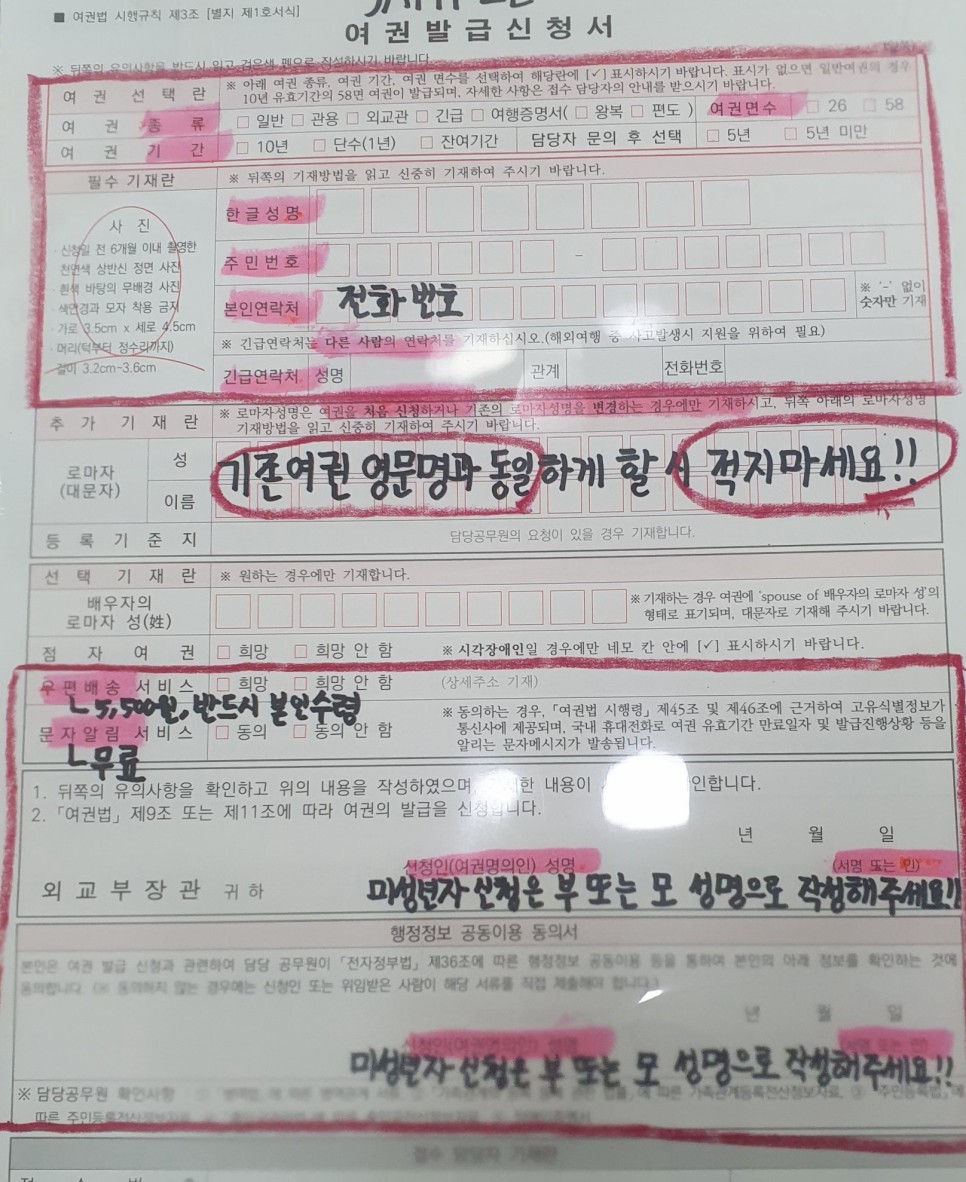 ■ 여권법 시행규칙 제3조 [별지 제1호서식]
여권발급신청서
※ 뒤쪽의 유의사항을 반드시 읽고 검은색 펜으로 작성하시기 바랍니다.
여권 선택란
※ 아래 여권 종류, 여권 기간, 여권 면수를 선택하여 해당란에 [✓] 표시하시기 바랍니다. 표시가 없으면 일반여권의 경우
10년 유효기간의 58면 여권이 발급되며, 자세한 사항은 접수 담당자의 안내를 받으시기 바랍니다.
여권 종류 □ 일반 □ 관용 □ 외교관 □ 긴급 □ 여행증명서( □ 왕복 □ 편도 ) 여권면수 □ 26 □ 58
여권 기간 □ 10년 □ 단수(1년) □ 잔여기간 담당자 문의 후 선택 □ 5년 □ 5년 미만
필수 기재란 ※ 뒤쪽의 기재방법을 읽고 신중히 기재하여 주시기 바랍니다.
사 진
· 신청일 전 6개월 이내 촬영한
천연색 상반신 정면 사진
· 흰색 바탕의 무배경 사진
· 색안경과 모자 착용 금지
· 가로 3.5cm x 세로 4.5cm
· 머리(턱부터 정수리까지)
길이 3.2cm~3.6cm
한글성명
주민번호 –
본인연락처 전화 번호 ※ '-' 없이
숫자만 기재
※ 긴급연락처는 다른 사람의 연락처를 기재하십시오.(해외여행 중 사고발생시 지원을 위하여 필요)
긴급연락처 성명 관계 전화번호
추가 기재란
※ 로마자성명은 여권을 처음 신청하거나 기존의 로마자성명을 변경하는 경우에만 기재하시고, 뒤쪽 아래의 로마자성명
기재방법을 읽고 신중히 기재하여 주시기 바랍니다.
로마자
(대문자)
성
이름
기존여권 영문명과 동일하게 할 시 적지마세요!!
등록기준지 담당공무원의 요청이 있을 경우 기재합니다.
선택 기재란 ※ 원하는 경우에만 기재합니다.
배우자의
로마자 성(姓)
※ 기재하는 경우 여권에 'spouse of 배우자의 로마자 성'의
형태로 표기되며, 대문자로 기재해 주시기 바랍니다.
점자여권 □ 희망 □ 희망 안 함 ※ 시각장애인일 경우에만 네모 칸 안에 [✓] 표시하시기 바랍니다.
우편배송 서비스 □ 희망 □ 희망 안 함 (상세주소 기재)
ㄴ5,500원, 반드시 본인수령
문자알림 서비스 □ 동의 □ 동의 안 함
ㄴ무료
※ 동의하는 경우, 「여권법 시행령」 제45조 및 제46조에 근거하여 고유식별정보가
통신사에 제공되며, 국내 휴대전화로 여권 유효기간 만료일자 및 발급진행상황 등을
알리는 문자메시지가 발송됩니다.
1. 뒤쪽의 유의사항을 확인하고 위의 내용을 작성하였으며, 내용이
2. 「여권법」 제9조 또는 제11조에 따라 여권의 발급을 신청합니다.
년 월 일
신청인(여권명의인) 성명 (서명 또는 인)
외교부장관 귀하
미성년자 신청은 부 또는 모 성명으로 작성해주세요!!
행정정보 공동이용 동의서
본인은 여권 발급 신청과 관련하여 담당 공무원이 「전자정부법」 제36조에 따른 행정정보 공동이용 등을 통하여 본인의 아래 정보를 확인하는 것에
동의합니다. (※ 동의하지 않는 경우에는 신청인 또는 위임받은 사람이 해당 서류를 직접 제출해야 합니다.)
년 월 일
신청인(여권명의인) 성명 (서명 또는 인)
미성년자 신청은 부 또는 모 성명으로 작성해주세요!!
※ 담당공무원 확인사항 에 따른 가족관계등록전산정보자료, ③ 「주민등록법」에
따른 주민등록전산정보자료
접수 담당자 기재란